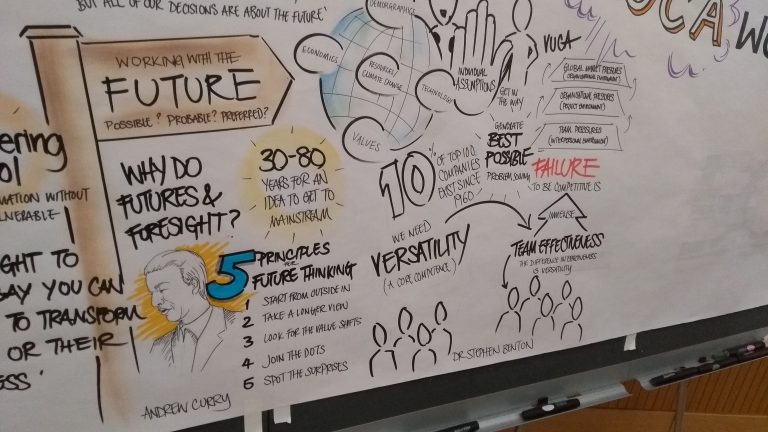 BUT ALL OF OUR DECISIONS ARE ABOUT THE FUTURE'
WORKING WITH THE
FUTURE
POSSIBLE? PROBABLE? PREFERRED?
WHY DO
FUTURES &
FORESIGHT?
30-80
YEARS FOR AN
IDEA TO GET TO
MAINSTREAM
5 PRINCIPLES
FOR
FUTURE THINKING
1 START FROM OUTSIDE IN
2 TAKE A LONGER VIEW
3 LOOK FOR THE VALUE SHIFTS
4 JOIN THE DOTS
5 SPOT THE SURPRISES
ANDREW CURRY
ering
ol
MATION WITHOUT
LNERABLE
GHT TO
SAY YOU CAN
TO TRANSFORM
OR THEIR
ESS'
DEMOGRAPHICS
ECONOMICS
RESOURCES/
CLIMATE CHANGE
TECHNOLOGY
VALUES
INDIVIDUAL
ASSUMPTIONS
GET IN
THE WAY
10% OF TOP 100
COMPANIES
EXIST SINCE
1960
WE NEED
VERSATILITY
(A CORE COMPETENCE)
DR STEPHEN BENTON
GENERATE
BEST
POSSIBLE
PROBLEM SOLVING
VUCA
GLOBAL MARKET PRESSURES
(ORGANISATIONAL ENVIRONMENT)
ORGANISATIONAL PRESSURES
(PROJECT ENVIRONMENT)
TEAM PRESSURES
(INTERPERSONAL ENVIRONMENT)
FAILURE
TO BE COMPETITIVE IS
IMMENSE
TEAM EFFECTIVENESS
THE DIFFERENCE IN EFFECTIVENESS
IS VERSATILITY
UCA WO